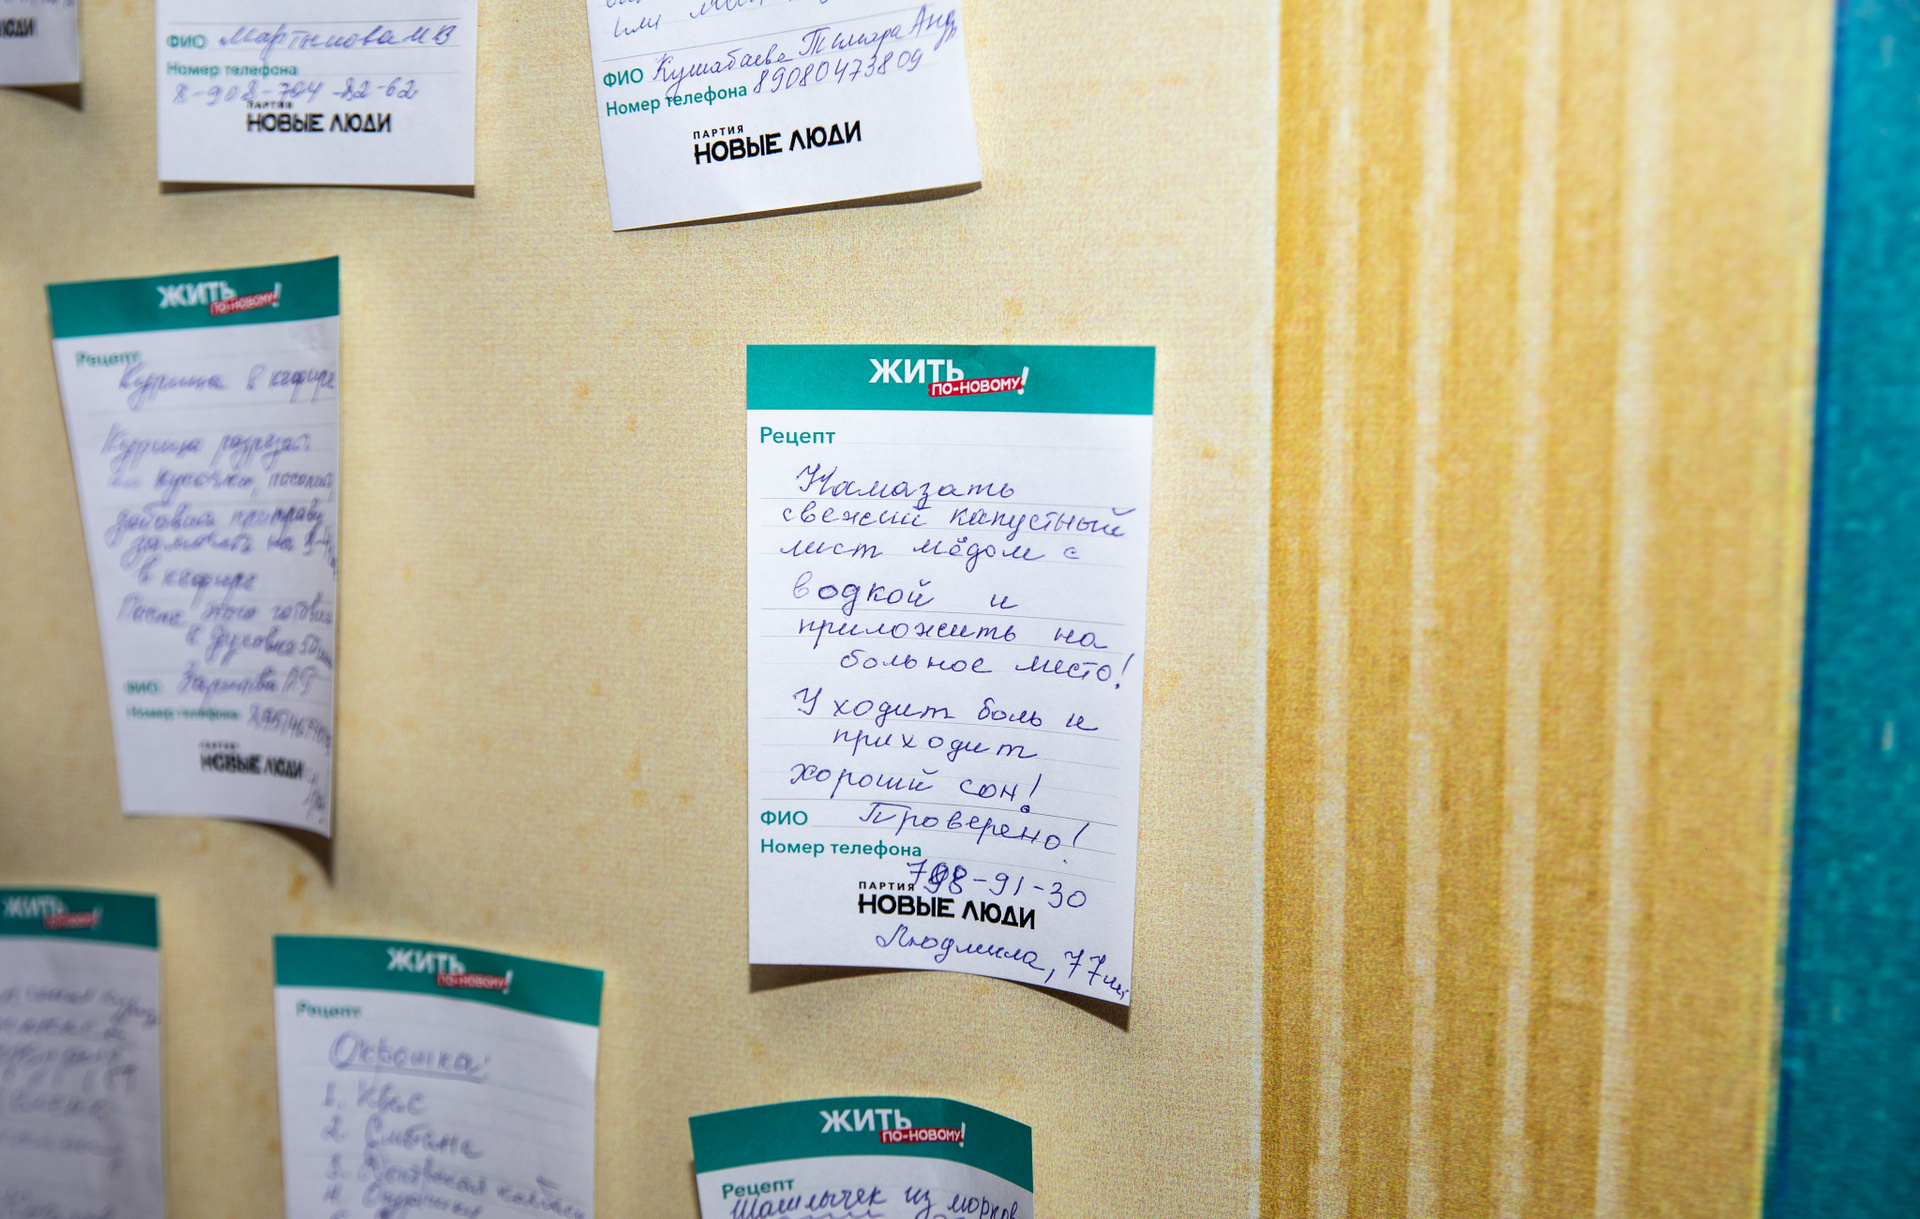 ФИО Мартынова М В
Номер телефона
8-908-704-82-62
ПАРТИЯ
НОВЫЕ ЛЮДИ
или
ФИО Кушабаева Тамара Анд
Номер телефона 89080473809
ПАРТИЯ
НОВЫЕ ЛЮДИ
ЖИТЬ
ПО-НОВОМУ!
Рецепт
Курица в кефире
Курица разрезать
на кусочки, посолить,
добавить приправу
замочить на 3-4
в кефире
После этого готовим
в духовке 50
ФИО
Номер телефона
ПАРТИЯ
НОВЫЕ ЛЮДИ
ЖИТЬ
ПО-НОВОМУ!
Рецепт
Намазать
свежий капустный
лист мёдом с
водкой и
приложить на
больное место!
Уходит боль и
приходит
хороший сон!
ФИО Проверено!
Номер телефона
798-91-30
ПАРТИЯ
НОВЫЕ ЛЮДИ
Людмила, 77
ЖИТЬ
ПО-НОВОМУ!
ЖИТЬ
ПО-НОВОМУ!
Рецепт
Окрошка:
1. Квас
2. Сметана
3. Докторская колбаса
4. Огурчики
ЖИТЬ
ПО-НОВОМУ!
Рецепт
Шашлычек из морков